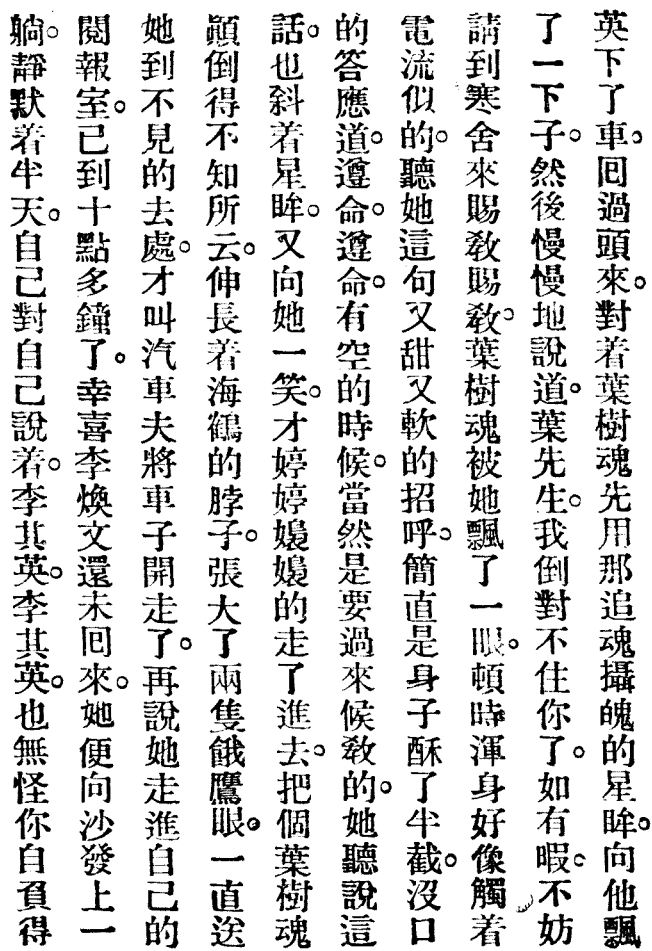 英下了車。囘過頭來。對着葉樹魂先用那追魂攝魄的星眸。向他飄
了一下子。然後慢慢地說道。葉先生。我倒對不住你了。如有暇。不妨
請到寒舍來賜敎賜敎。葉樹魂被她飄了一眼。頓時渾身好像觸着
電流似的。聽她這句又甜又軟的招呼。簡直是身子酥了半截。沒口
的答應道。遵命。遵命。有空的時候。當然是要過來候敎的。她聽說這
話。也斜着星眸。又向她一笑。才婷婷嬝嬝的走了進去。把個葉樹魂
顚倒得不知所云。伸長着海鶴的脖子。張大了兩隻餓鷹眼。一直送
她到不見的去處。才叫汽車夫將車子開走了。再說她走進自己的
閱報室。已到十點多鐘了。幸喜李煥文還未囘來。她便向沙發上一
躺。靜默着半天。自己對自己說着。李其英。李其英。也無怪你自負得